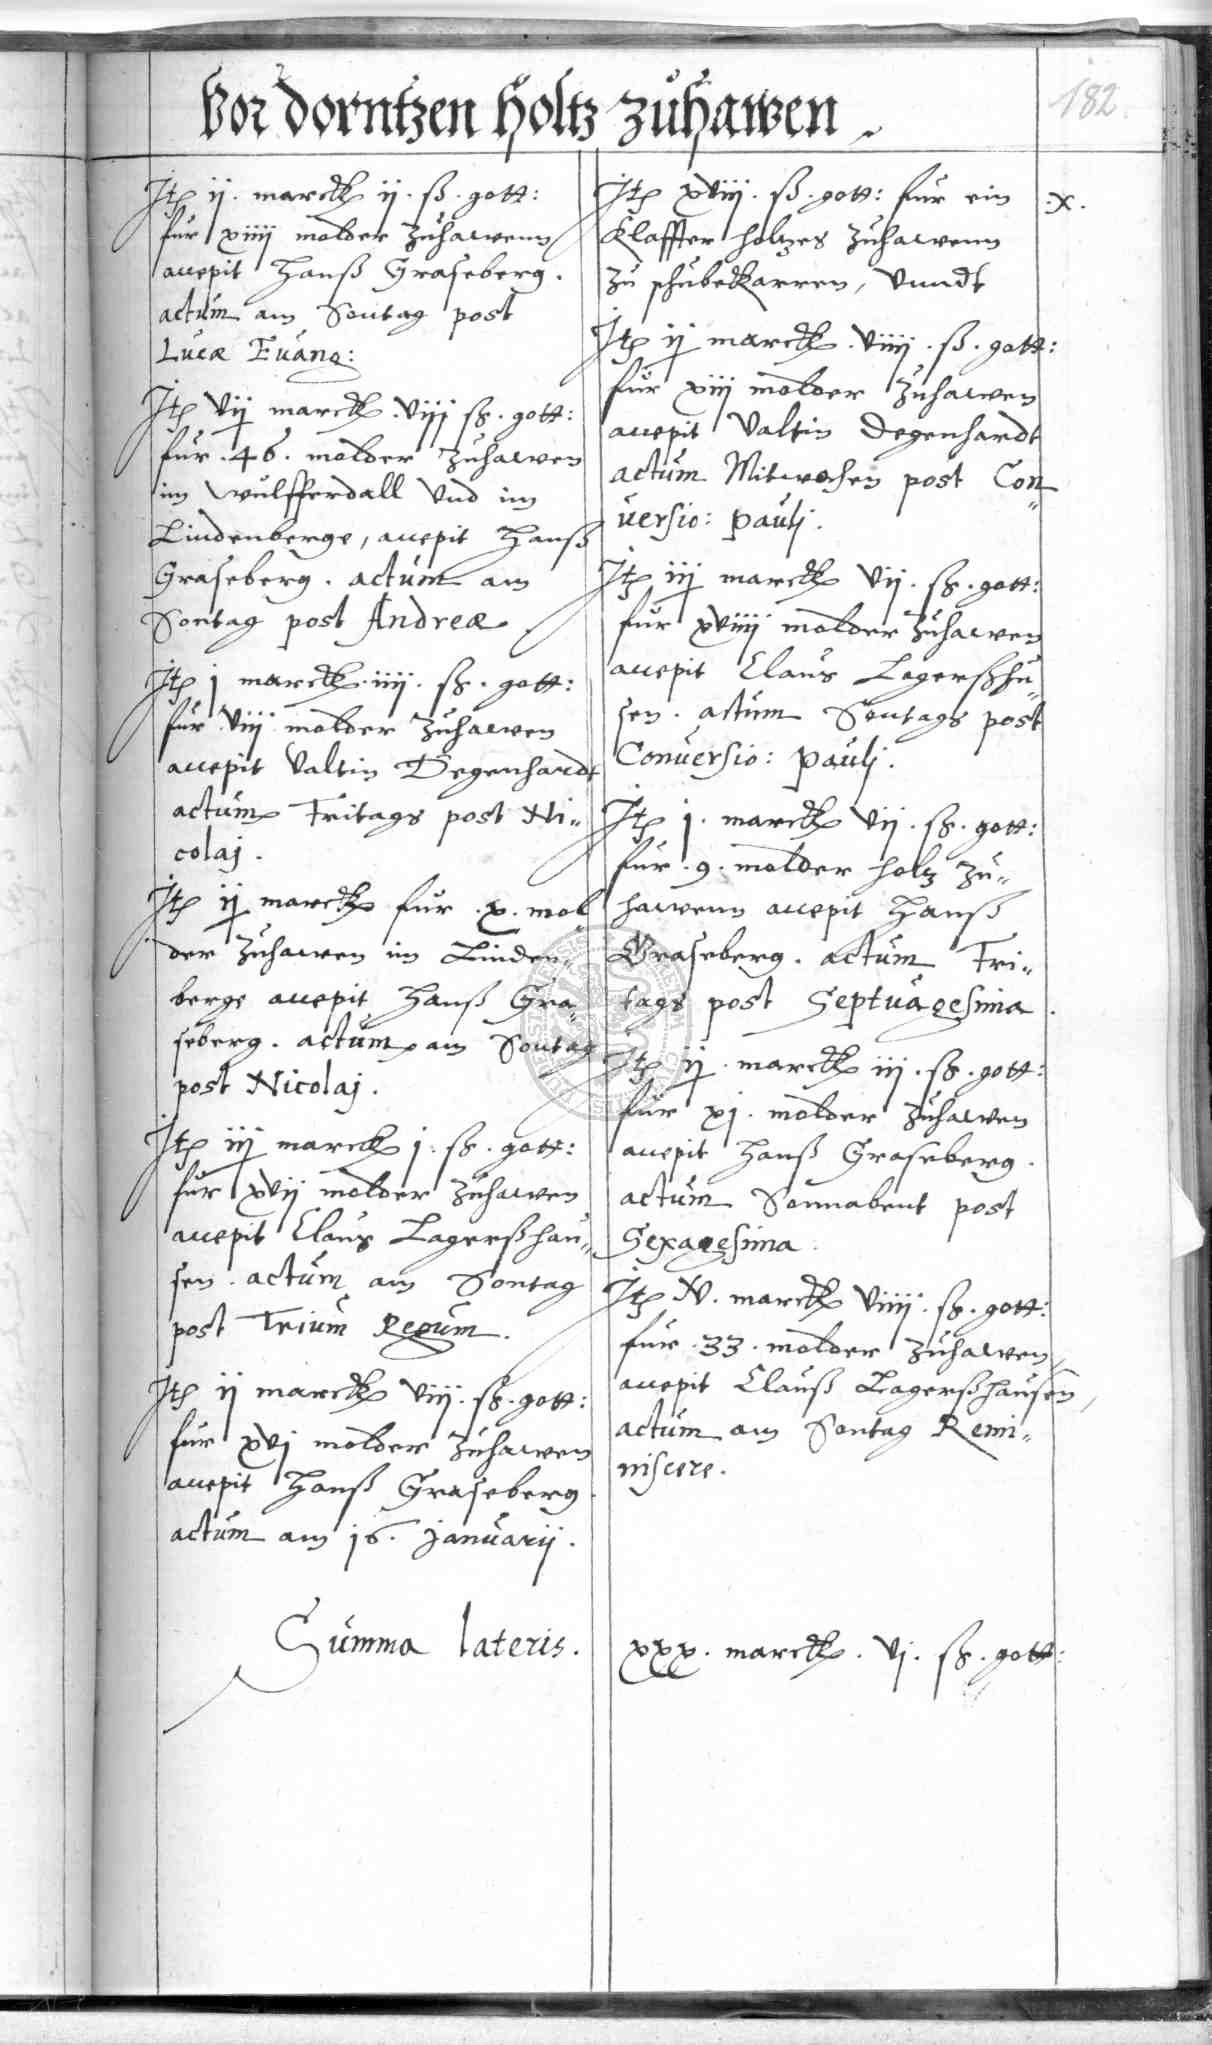 Vor dorntzen holtz zuhawen
182
Itz ij. marck ij. ß. gott:
fur xiiij molder zuhawenn
accepit Hanß Graseberg.
actum am Sontag post
Lucæ Euang:
Itz vij marck. viij ß. gott:
fur .46. molder zuhawen
im Wulfferdall vnd im
Lindenberge, accepit Hanß
Graseberg. actum am
Sontag post Andreæ
Itz j marck. iiij. ß. gott:
fur viij molder zuhawen
accepit Valtin Degenhardt
actum Fritags post Ni„
colaj.
Itz ij marck fur .x. mol
der zuhawen im Linden„
berge accepit Hanß Gra„
seberg. actum am Sontag
post Nicolaj.
Itz iij marck j. ß. gott:
fur xvij molder zuhawen
accepit Claus Lagerßhau„
sen. actum am Sontag
post Trium Regum.
Itz ij marck viij. ß. gott:
fur xvj molder zuhawen
accepit Hanß Graseberg
actum am 16. januarij.
Itz xviij. ß. gott: fur ein
Klaffter holtzes zuhawenn
zu schubekarren, vnndt
.x.
Itz ij marck. viiij. ß. gott:
fur xiij molder zuhawen
accepit Valtin Degenhardt
actum Mitwochen post Con„
uersio: pauli.
Itz iij marck vij. ß. gott:
fur xviiij molder zuhawen
accepit Claus Lagerßhu„
sen. actum Sontags post
Conuersio: pauli.
Itz j. marck vij. ß. gott:
fur .9. molder holtz zu„
hawenn accepit Hanß
Graseberg. actum Fri„
tags post Septuagesima.
Itz ij. marck iij. ß. gott:
fur xj. molder zuhawen
accepit Hanß Graseberg.
actum Sonnabent post
Sexagesima.
Itz V. marck viiij. ß. gott:
fur .33. molder zuhawen,
accepit Clauß Lagerßhausen,
actum am Sontag Remi„
niscere.
Summa lateris. xxx. marck. vj. ß. gott: